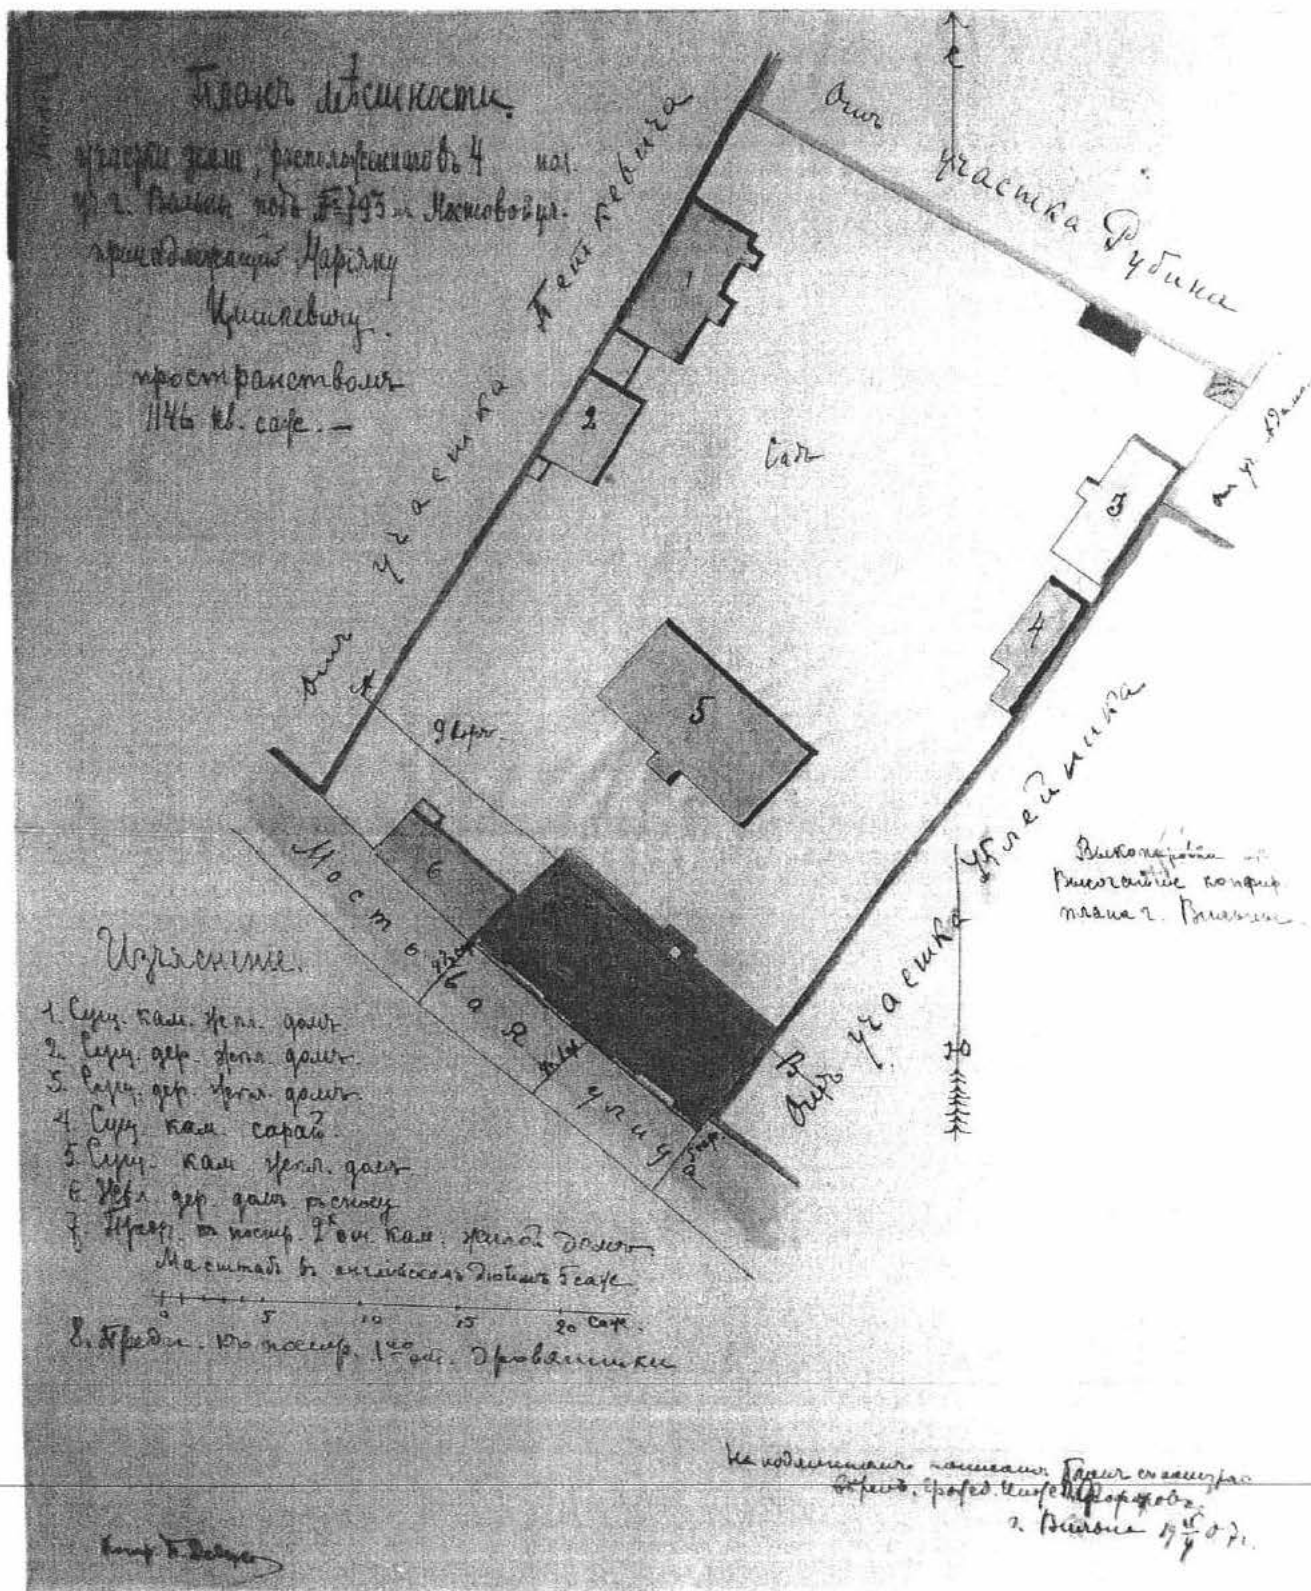 Планъ мѣстности
участка земли, расположеннаго въ 4
г. Вильны подъ № 793 Мостовой ул.
принадлежащій Маріяну
Цишкевичу.
пространствомъ
1146 кв. саж. —
С
Отъ участка Петкевича
Отъ участка Рубина
Отъ уч.
1
2
Садъ
3
4
5
А
6
Мостовая улица
В
Отъ участка Улейника
Выкопировка
Высочайше конфир.
плана г. Вильны.
Ю
Изъясненіе.
1. Сущ. кам. жил. домъ
2. Сущ. дер. жил. домъ.
3. Сущ. дер. жил. домъ.
4. Сущ. кам. сарай.
5. Сущ. кам. жил. домъ
6. Жил. дер. домъ къ сносу
7. Предп. къ постр. 2х эт. кам. жилой домъ.
Масштабъ въ англійскомъ дюймѣ 5 саж.
0 5 10 15 20 саж.
8. Предп. къ постр. 1но эт. дровяники
На подлинномъ написано: Планъ
г. Вильна 19 07 г.